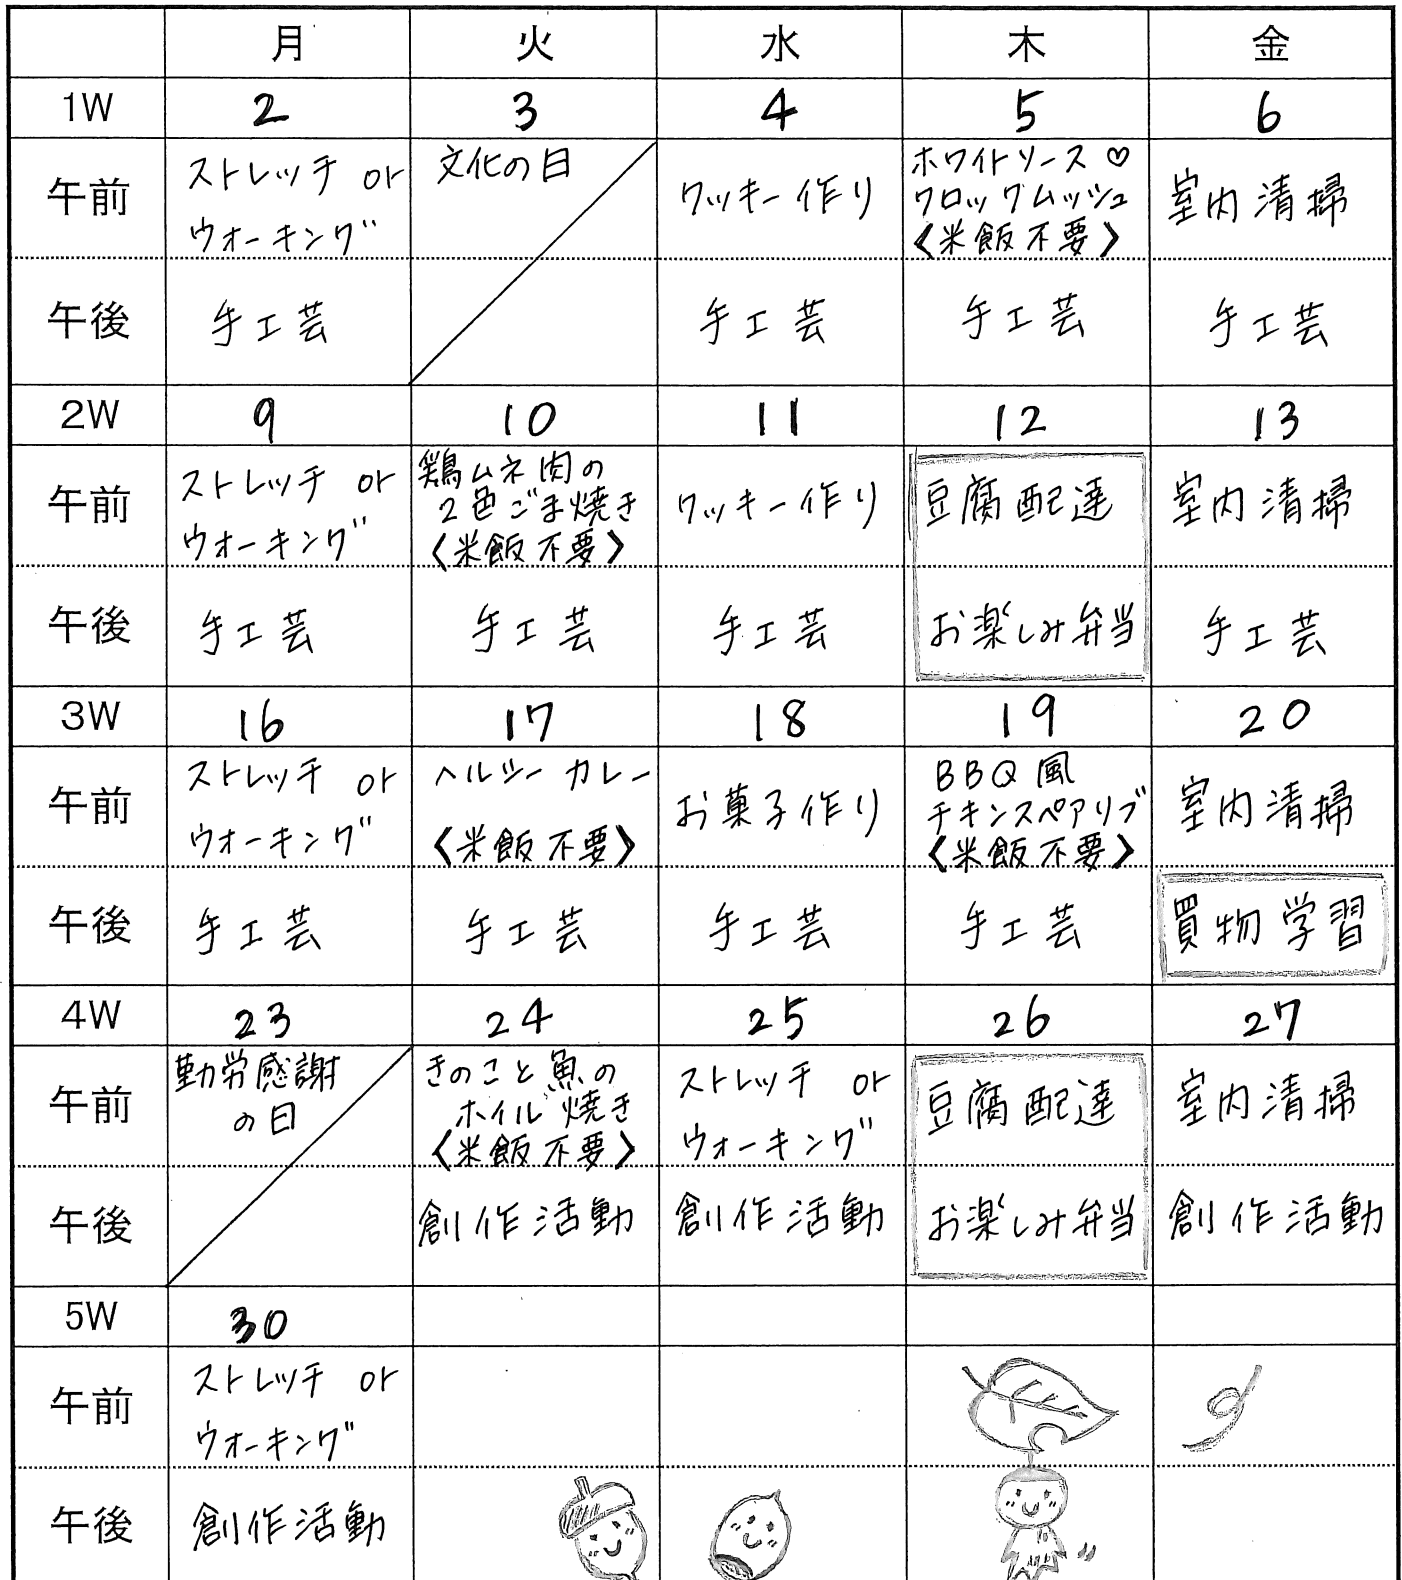 月 火 水 木 金
1W 2 3 4 5 6
午前 ストレッチ or ウォーキング 文化の日 クッキー作り ホワイトソース♡ クロックムッシュ 〈米飯不要〉 室内清掃
午後 手工芸 手工芸 手工芸 手工芸
2W 9 10 11 12 13
午前 ストレッチ or ウォーキング 鶏ムネ肉の 2色ごま焼き 〈米飯不要〉 クッキー作り 豆腐配達 室内清掃
午後 手工芸 手工芸 手工芸 お楽しみ弁当 手工芸
3W 16 17 18 19 20
午前 ストレッチ or ウォーキング ヘルシーカレー 〈米飯不要〉 お菓子作り BBQ風 チキンスペアリブ 〈米飯不要〉 室内清掃
午後 手工芸 手工芸 手工芸 手工芸 買物学習
4W 23 24 25 26 27
午前 勤労感謝 の日 きのこと魚の ホイル焼き 〈米飯不要〉 ストレッチ or ウォーキング 豆腐配達 室内清掃
午後 創作活動 創作活動 お楽しみ弁当 創作活動
5W 30
午前 ストレッチ or ウォーキング
午後 創作活動